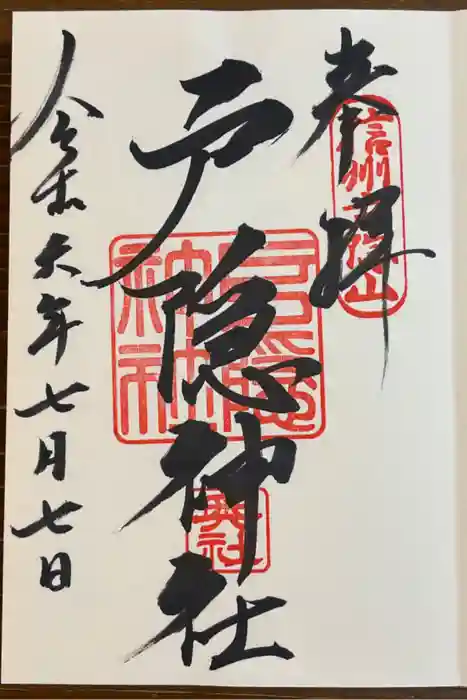 奉拝
信州戸隠山
戸隠神社
戸隠
神社
奥社
令和六年七月七日